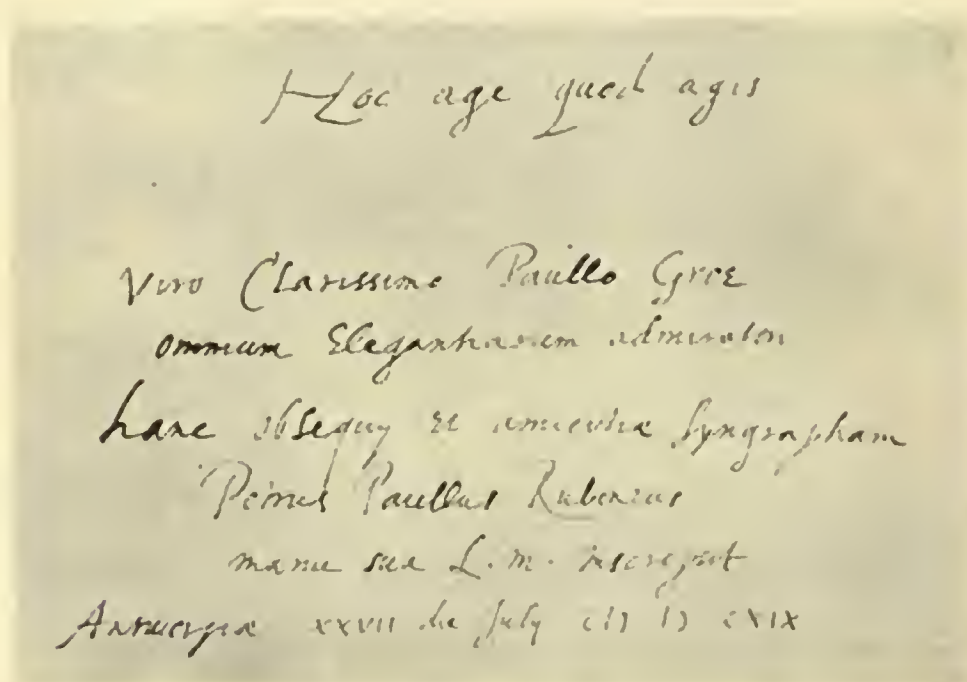 Hoc age quod agis
Viro Clarissimo Paullo Groe
omnium Elegantiarum admiratori
hanc obsequy et amicitiæ syngrapham
Petrus Paullus Rubenius
manu sua L. m. inscripsit
Antverpiæ xxvii die July CIↃ IↃ CXIX